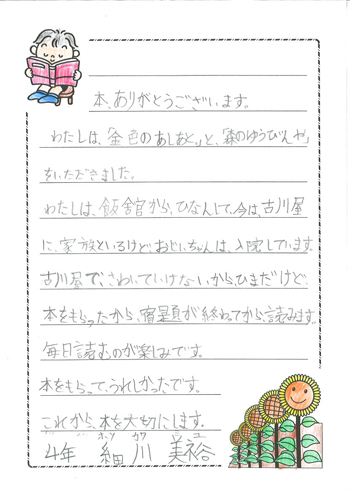 本、ありがとうございます。
わたしは、「金色のあしあと」と、「森のゆうびんや」
をいただきました。
わたしは、飯舘から、ひなんして、今は、古川屋
に、家族といるけど、おじいちゃんは、入院しています。
古川屋で、さわいでいけないから、ひまだけど、
本をもらったから、宿題が終わってから、読みます。
毎日読むのが楽しみです。
本をもらって、うれしかったです。
これから、本を大切にします。
ホソ カワ ミ ユ
4年 細川 美裕